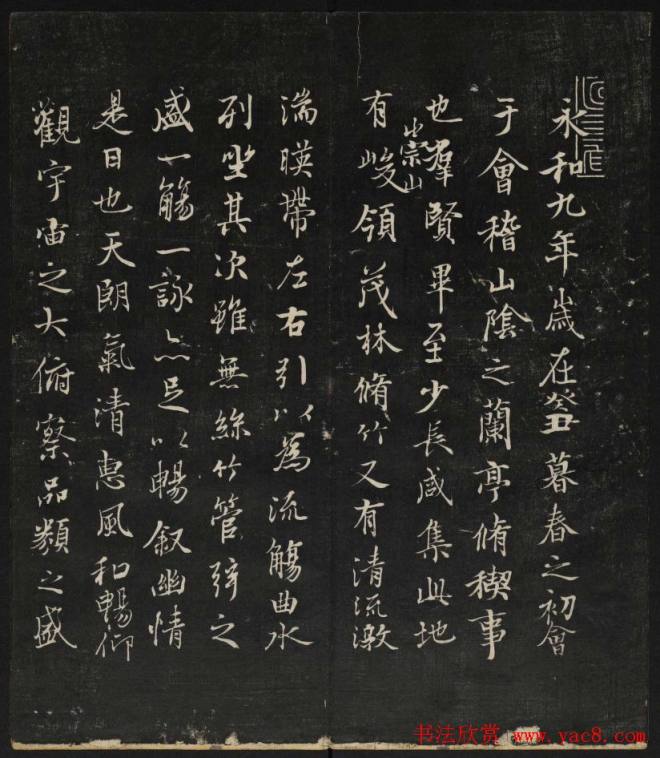 永和九年歲在癸丑暮春之初會
于會稽山陰之蘭亭脩稧事
也羣賢畢至少長咸集此地
有崇山峻領茂林脩竹又有清流激
湍暎帶左右引以為流觴曲水
列坐其次雖無絲竹管弦之
盛一觴一詠亦足以暢敘幽情
是日也天朗氣清惠風和暢仰
觀宇宙之大俯察品類之盛
书法欣赏 www.yac8.com